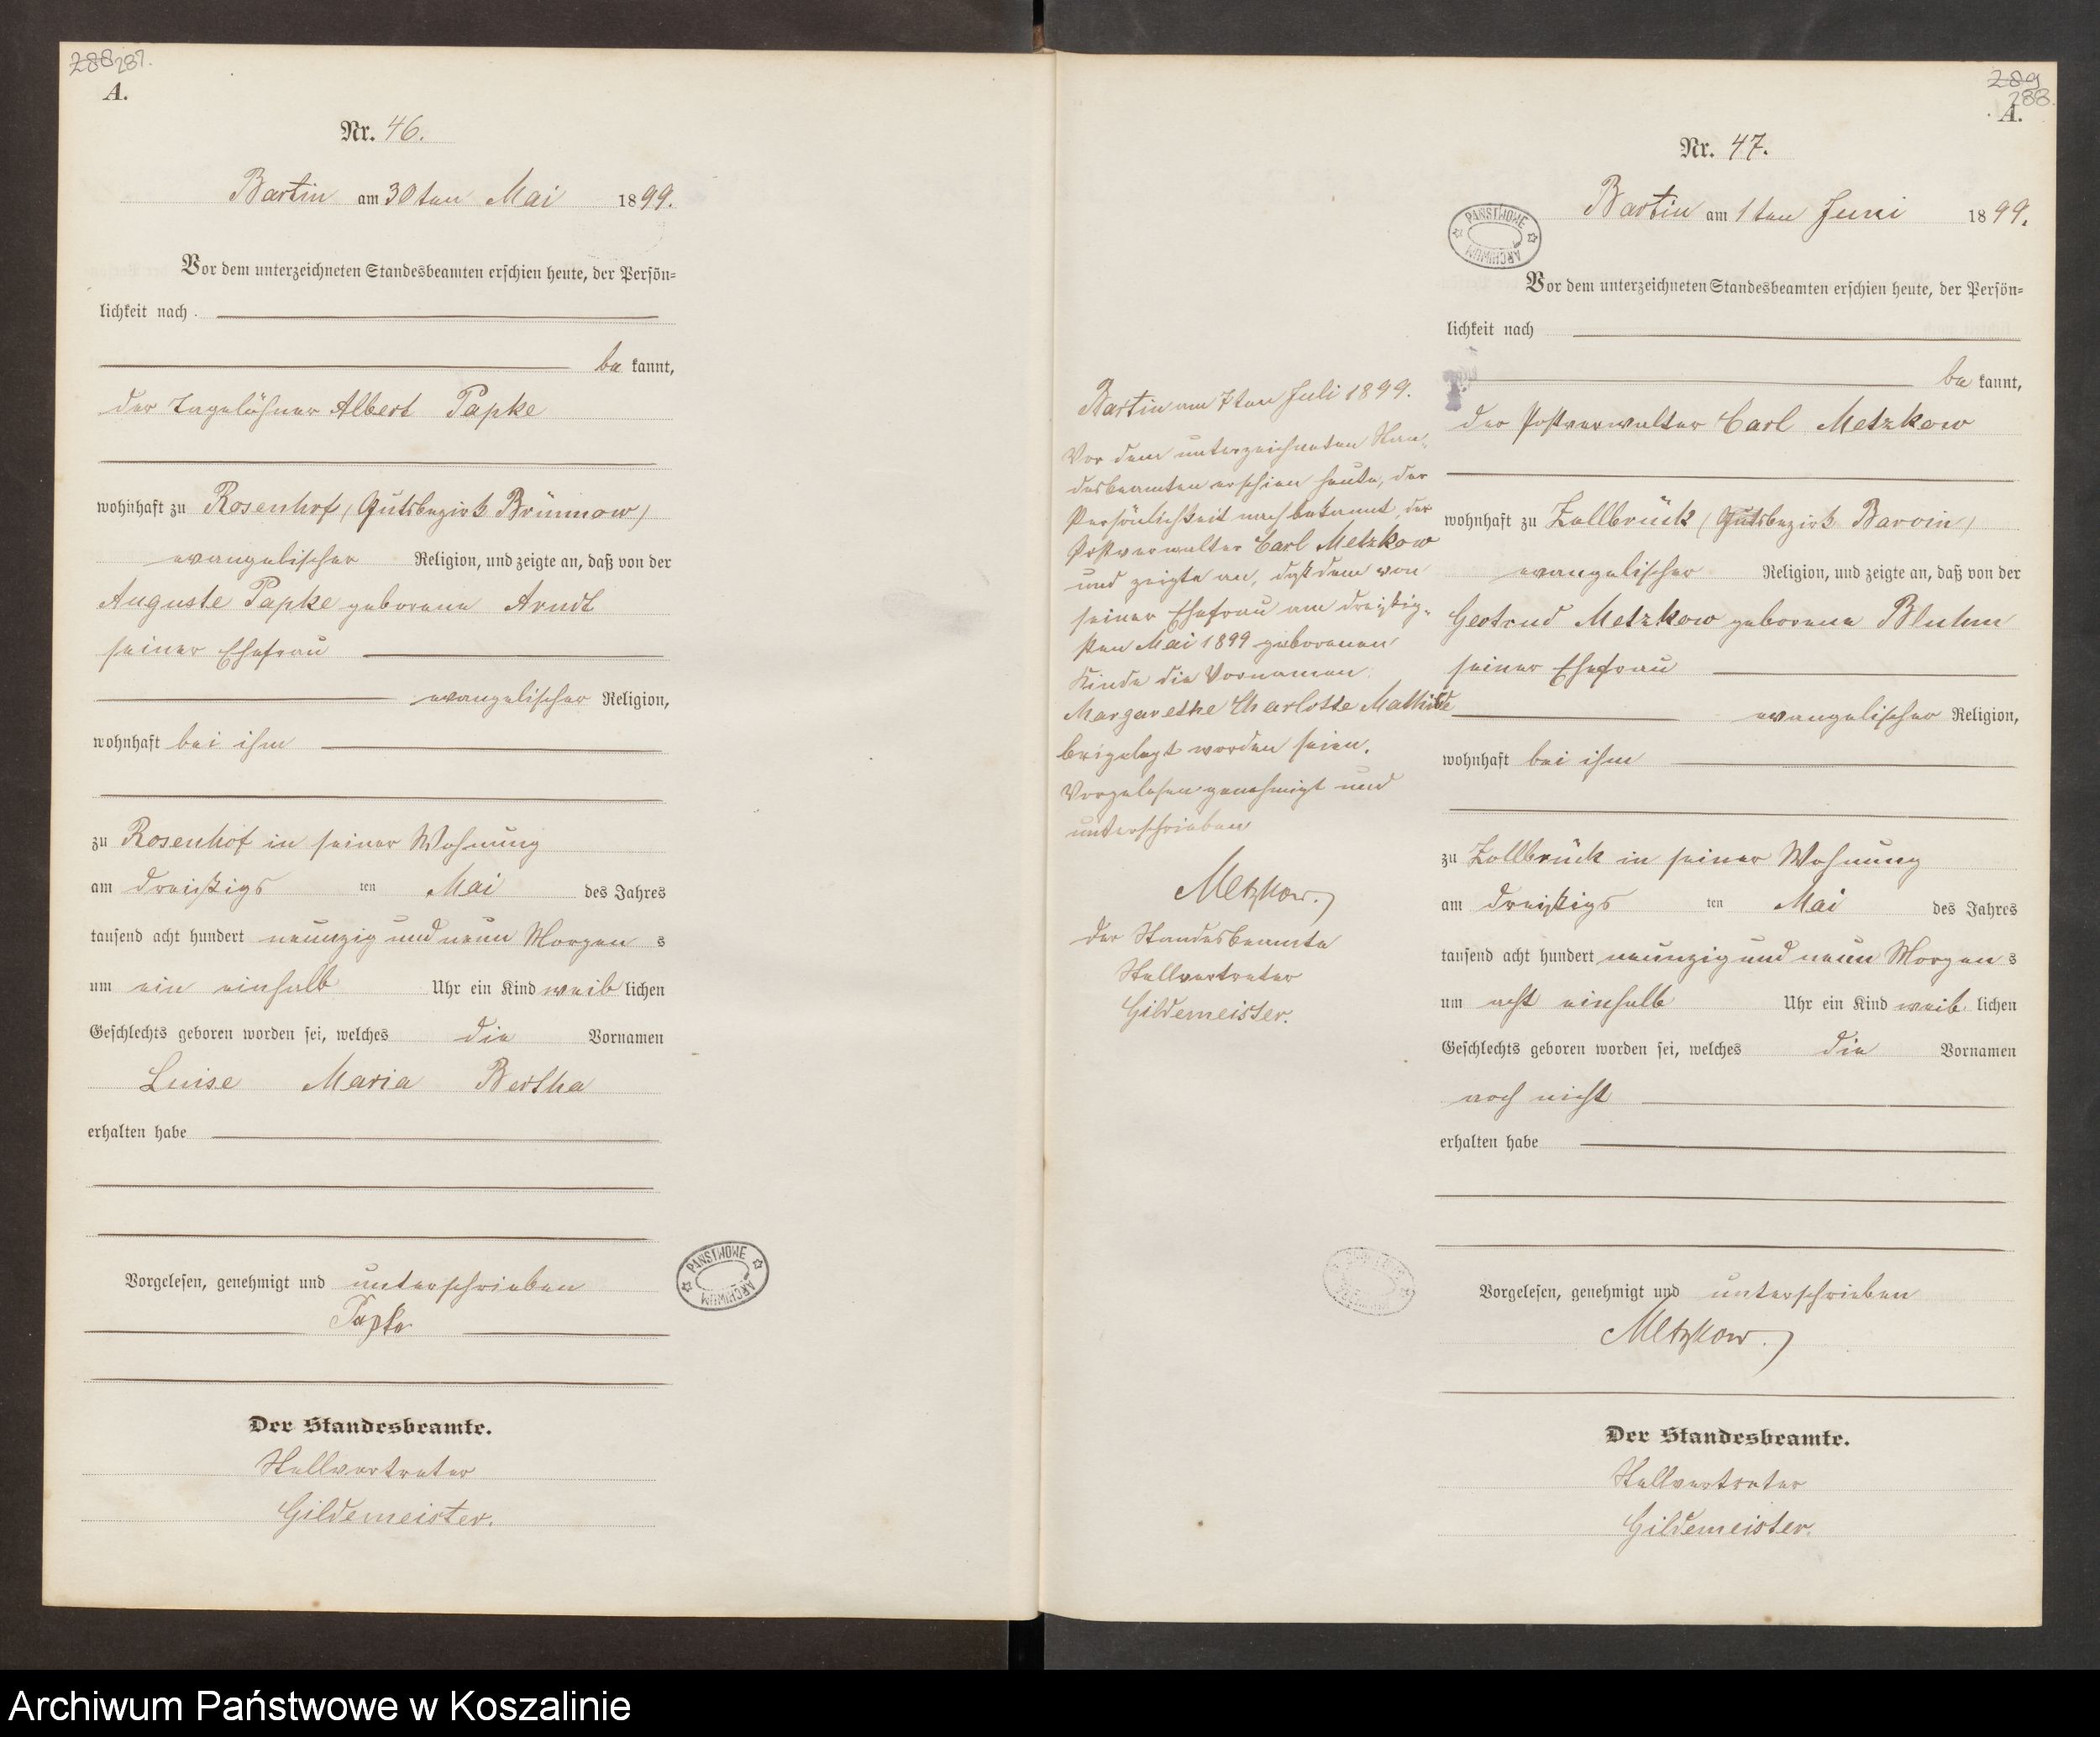 288 287.
A.
Nr. 46.
Bartin am 30ten Mai 1899.
Vor dem unterzeichneten Standesbeamten erschien heute, der Persön=
lichkeit nach
be kannt,
der Tagelöhner Albert Papke
wohnhaft zu Rosenhof (Gutsbezirk Brünnow)
evangelischer Religion, und zeigte an, daß von der
Auguste Papke geborene Arndt
seiner Ehefrau
evangelischer Religion,
wohnhaft bei ihm
zu Rosenhof in seiner Wohnung
am dreißigs ten Mai des Jahres
tausend acht hundert neunzig und neun Morgen s
um ein einhalb Uhr ein Kind weib lichen
Geschlechts geboren worden sei, welches die Vornamen
Luise Maria Bertha
erhalten habe
Vorgelesen, genehmigt und unterschrieben
Papke
Der Standesbeamte.
Stellvertreter
Gildemeister.
PAŃSTWOWE ARCHIWUM
Bartin am 7ten Juli 1899.
Vor dem unterzeichneten Stan-
desbeamten erschien heute, der
Persönlichkeit nach bekannt, der
Postverwalter Carl Metzkow
und zeigte an, daß dem von
seiner Ehefrau am dreißig-
sten Mai 1899 geborenen
Kinde die Vornamen
Margarethe Charlotte Mathilde
beigelegt worden seien.
Vorgelesen genehmigt und
unterschrieben
Metzkow.
Der Standesbeamte
Stellvertreter
Gildemeister.
289
288.
A.
Nr. 47.
PAŃSTWOWE ARCHIWUM
Bartin am 1ten Juni 1899.
Vor dem unterzeichneten Standesbeamten erschien heute, der Persön=
lichkeit nach
be kannt,
der Postverwalter Carl Metzkow
wohnhaft zu Zollbrück (Gutsbezirk Barvin)
evangelischer Religion, und zeigte an, daß von der
Gertrud Metzkow geborene Bluhm
seiner Ehefrau
evangelischer Religion,
wohnhaft bei ihm
zu Zollbrück in seiner Wohnung
am dreißigs ten Mai des Jahres
tausend acht hundert neunzig und neun Morgen s
um acht einhalb Uhr ein Kind weib lichen
Geschlechts geboren worden sei, welches die Vornamen
noch nicht
erhalten habe
Vorgelesen, genehmigt und unterschrieben
Metzkow.
Der Standesbeamte.
Stellvertreter
Gildemeister.
Archiwum Państwowe w Koszalinie